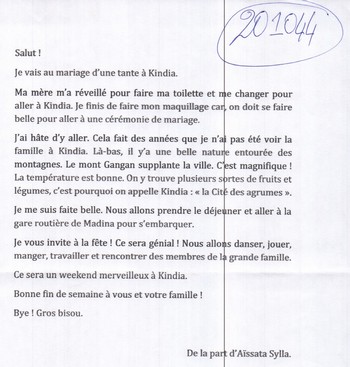 201044
Salut !
Je vais au mariage d'une tante à Kindia.
Ma mère m'a réveillé pour faire ma toilette et me changer pour
aller à Kindia. Je finis de faire mon maquillage car, on doit se faire
belle pour aller à une cérémonie de mariage.
J'ai hâte d'y aller. Cela fait des années que je n'ai pas été voir la
famille à Kindia. Là-bas, il y'a une belle nature entourée des
montagnes. Le mont Gangan supplante la ville. C'est magnifique !
La température est bonne. On y trouve plusieurs sortes de fruits et
légumes, c'est pourquoi on appelle Kindia : « la Cité des agrumes ».
Je me suis faite belle. Nous allons prendre le déjeuner et aller à la
gare routière de Madina pour s'embarquer.
Je vous invite à la fête ! Ce sera génial ! Nous allons danser, jouer,
manger, travailler et rencontrer des membres de la grande famille.
Ce sera un weekend merveilleux à Kindia.
Bonne fin de semaine à vous et votre famille !
Bye ! Gros bisou.
De la part d'Aïssata Sylla.